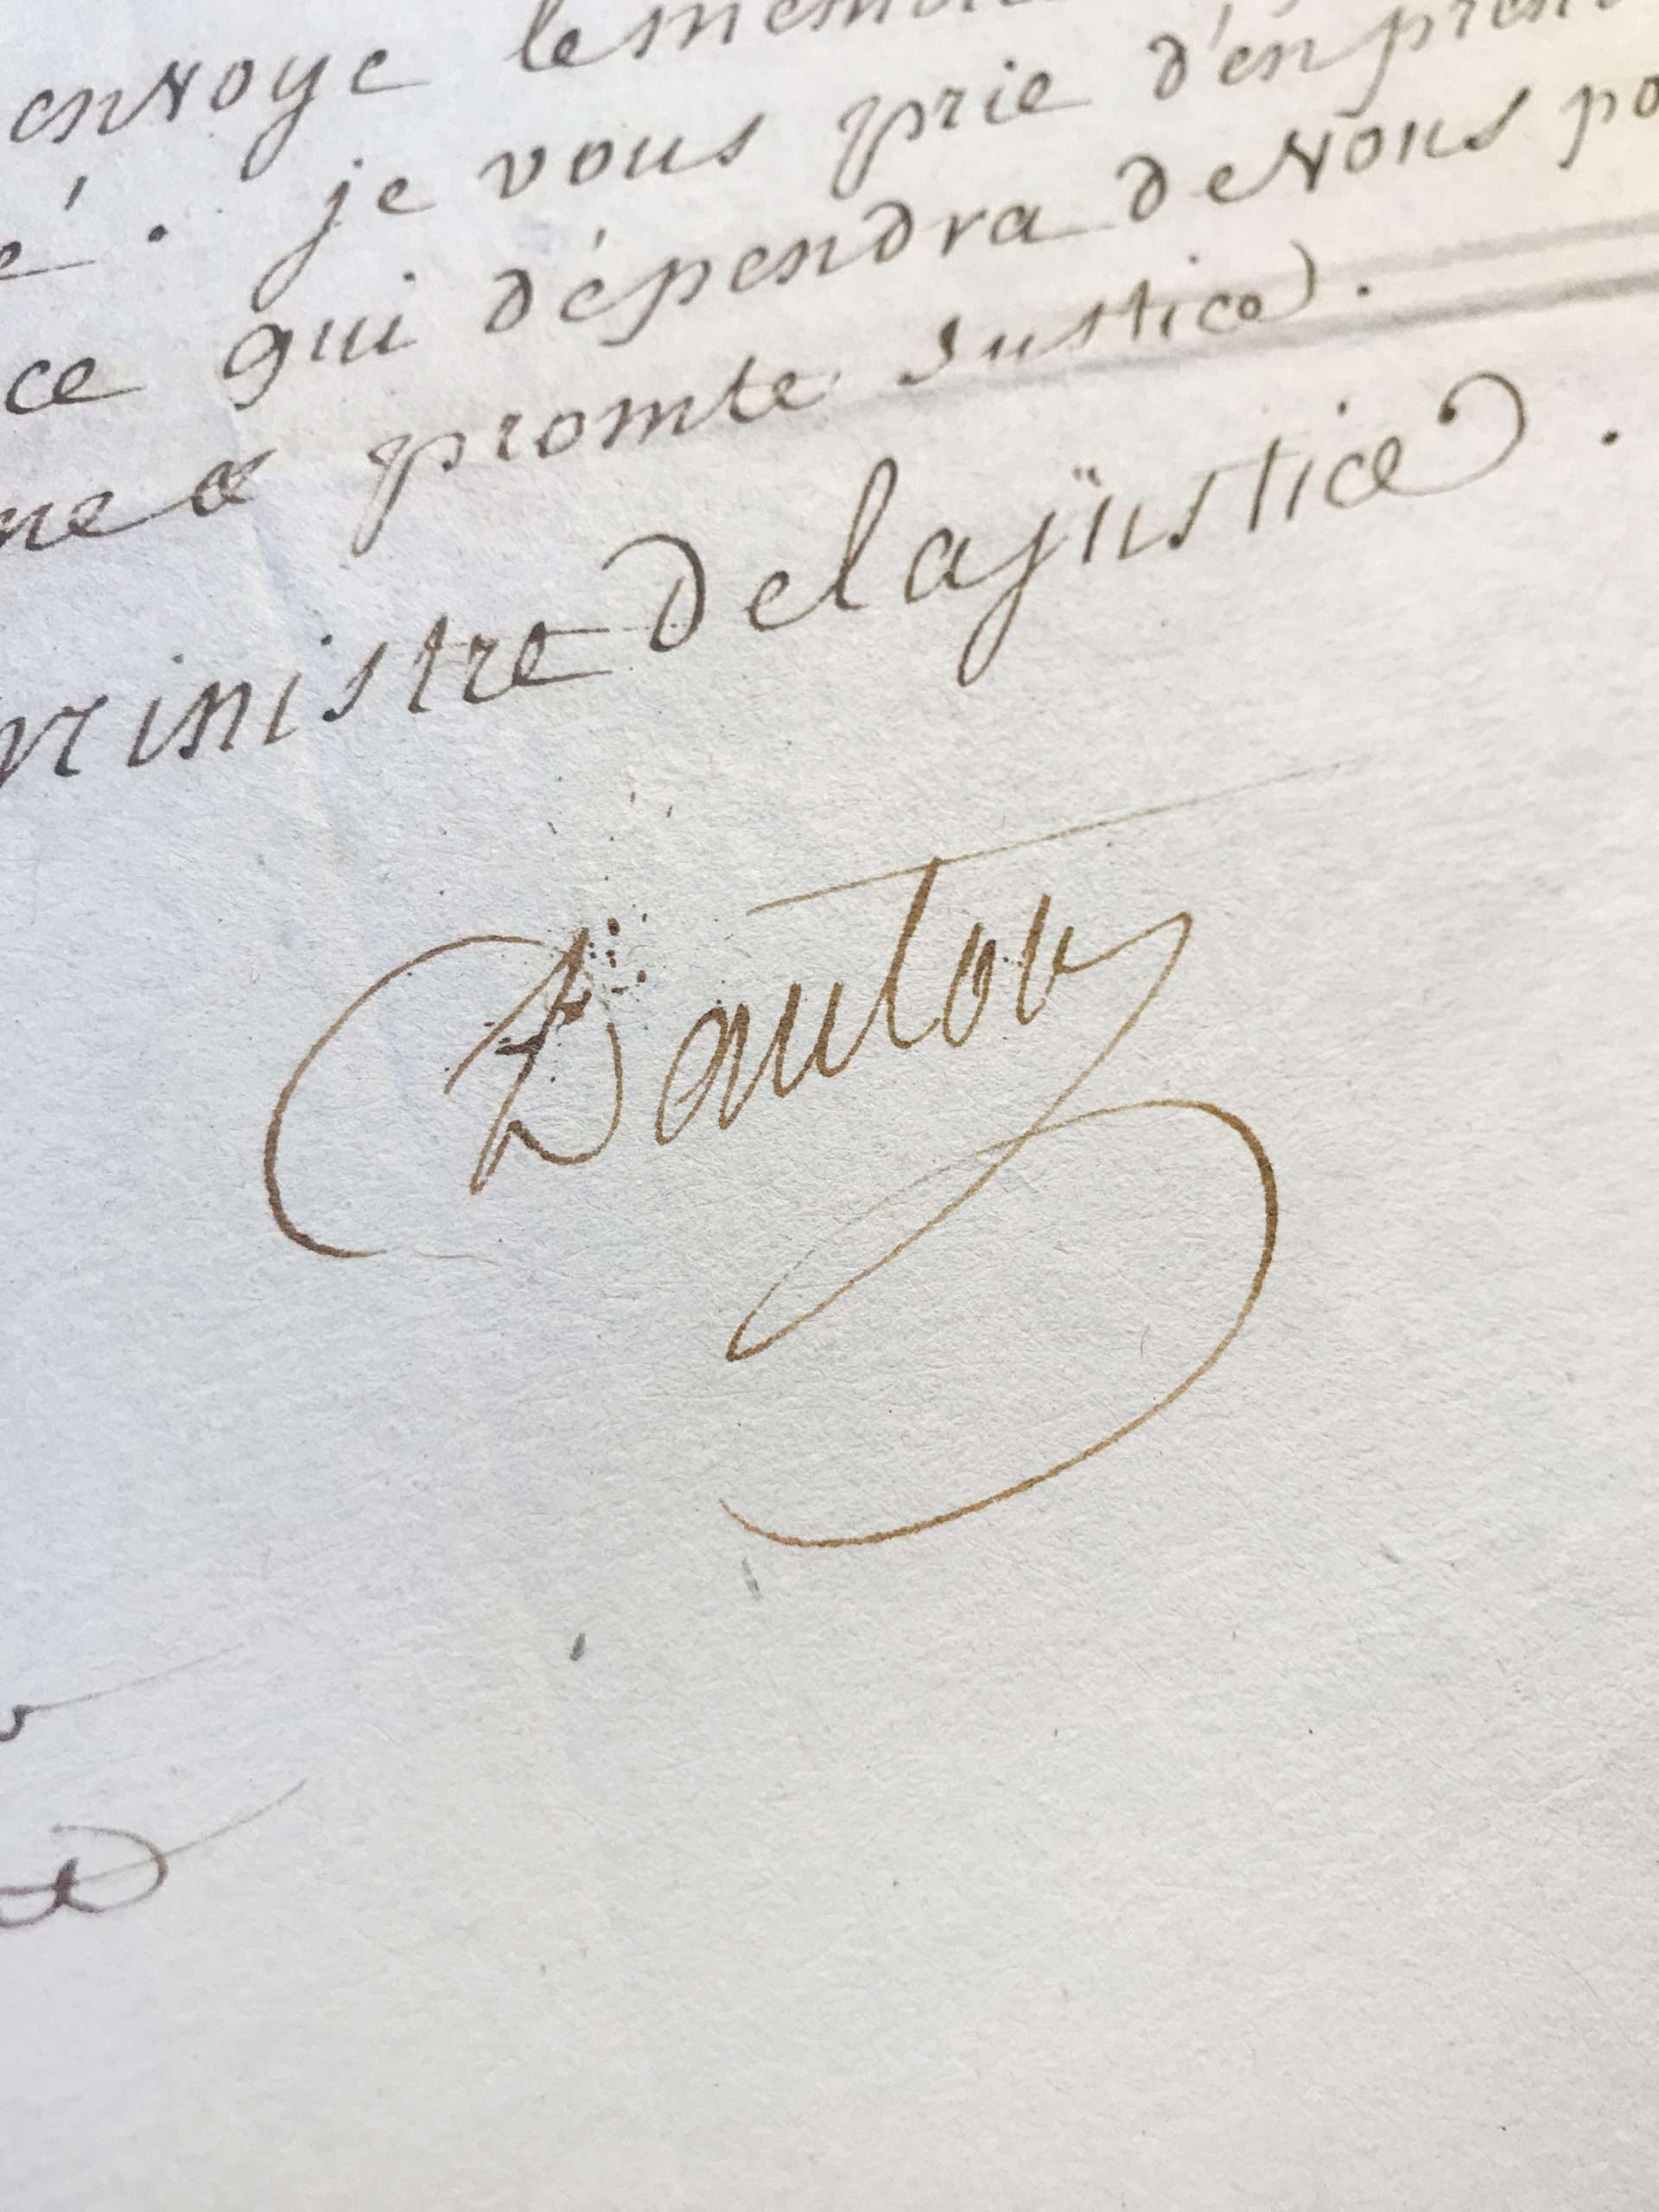 envoye le
é. je vous prie d'en
ce qui dépendra de vous
promte Justice.
ministre de la justice.
Danton